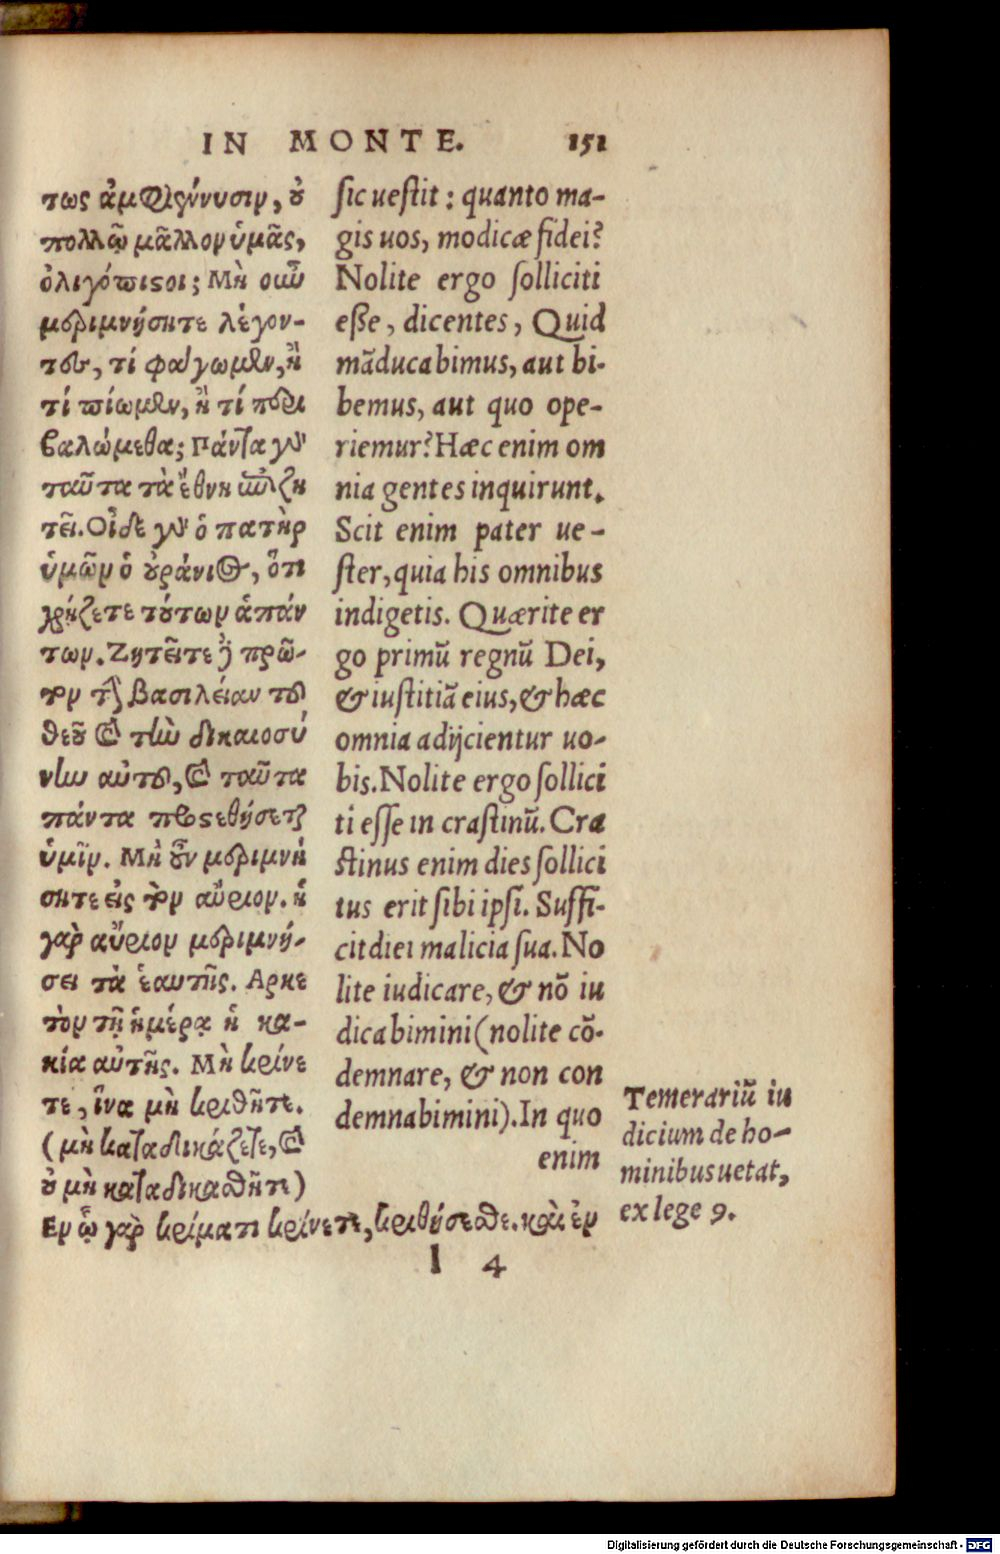 IN MONTE. 151
τως ἀμφιέννυσιν, ȣ
πολλῷ μᾶλλον ὑμᾶς,
ὀλιγόπιϛοι; Μὴ οιῦ
μεριμνήσητε λέγον-
τες, τί φάγωμεν, ἢ
τί πίωμεν, ἢ τί περι
βαλώμεθα; Πάντα γὰρ
ταῦτα τὰ ἔθνη ἐπιζη
τεῖ. Οἶδε γὰρ ὁ πατὴρ
ὑμῶν ὁ ȣράνιος, ὅτι
χρῄζετε τȣτων ἁπάν
των. Ζητεῖτε δὲ πρῶ-
τον τὴν βασιλείαν τȣ
θεȣ͂ καὶ τὴν δικαιοσύ
νην αὐτȣ, καὶ ταῦτα
πάντα προϛεθήσεται
ὑμῖν. Μὴ ȣ̓͂ν μεριμνή
σητε εἰς τὴν αὔριον. ἡ
γὰρ αὔριον μεριμνή-
σει τὰ ἑαυτῆς. Αρκε
τὸν τῇ ἡμέρᾳ ἡ κα-
κία αὐτῆς. Μὴ κρίνε
τε, ἵνα μὴ κριθῆτε.
(μὴ καταδικάζετε, καὶ
ȣ μὴ καταδικασθῆτε)
Εν ᾧ γὰρ κρίματι κρίνετε, κριθήσεσθε. καὶ ἐν
sic uestit: quanto ma-
gis uos, modicæ fidei?
Nolite ergo solliciti
eße, dicentes, Quid
mãducabimus, aut bi-
bemus, aut quo ope-
riemur? Hæc enim om
nia gentes inquirunt.
Scit enim pater ue-
ster, quia his omnibus
indigetis. Quærite er
go primũ regnũ Dei,
& iustitiã eius, & hæc
omnia adijcientur uo-
bis. Nolite ergo sollici
ti esse in crastinũ. Cra
stinus enim dies sollici
tus erit sibi ipsi. Suffi-
cit diei malicia sua. No
lite iudicare, & nõ iu
dicabimini (nolite cõ-
demnare, & non con
demnabimini). In quo
enim
Temerariũ iu
dicium de ho-
minibus uetat,
ex lege 9.
I 4
Digitalisierung gefördert durch die Deutsche Forschungsgemeinschaft - DFG